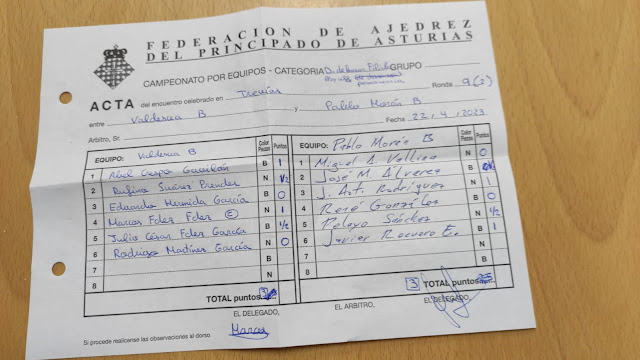 FEDERACION DE AJEDREZ
DEL PRINCIPADO DE ASTURIAS
CAMPEONATO POR EQUIPOS - CATEGORIA GRUPO
ACTA del encuentro celebrado en Ronda 9(2)
entre Valdesva B y Pablo Morán B
Arbitro, Sr. Fecha 22/4/2023
EQUIPO: Valdesva B Color Piezas Puntos
1 Abel Crespo Gavilán B 1
2 Rufino Suárez N 1/2
3 Eduardo Hermida García B 0
4 Marcos Fdez Fdez N 1
5 Julio César Fdez García B 1/2
6 Rodrigo Martínez García N 0
7 B
8 N
TOTAL puntos 3
EL DELEGADO,
Marcos
Si procede realicense las observaciones al dorso.
EQUIPO: Pablo Morán B Color Piezas Puntos
1 Miguel A. Vallina N 0
2 José M. Álvarez B
3 J. Ant. Rodríguez N 1
4 René González B 0
5 Pelayo Sánchez N 1/2
6 Javier B 1
7 N
8 B
3 TOTAL puntos
EL ARBITRO,
EL DELEGADO,